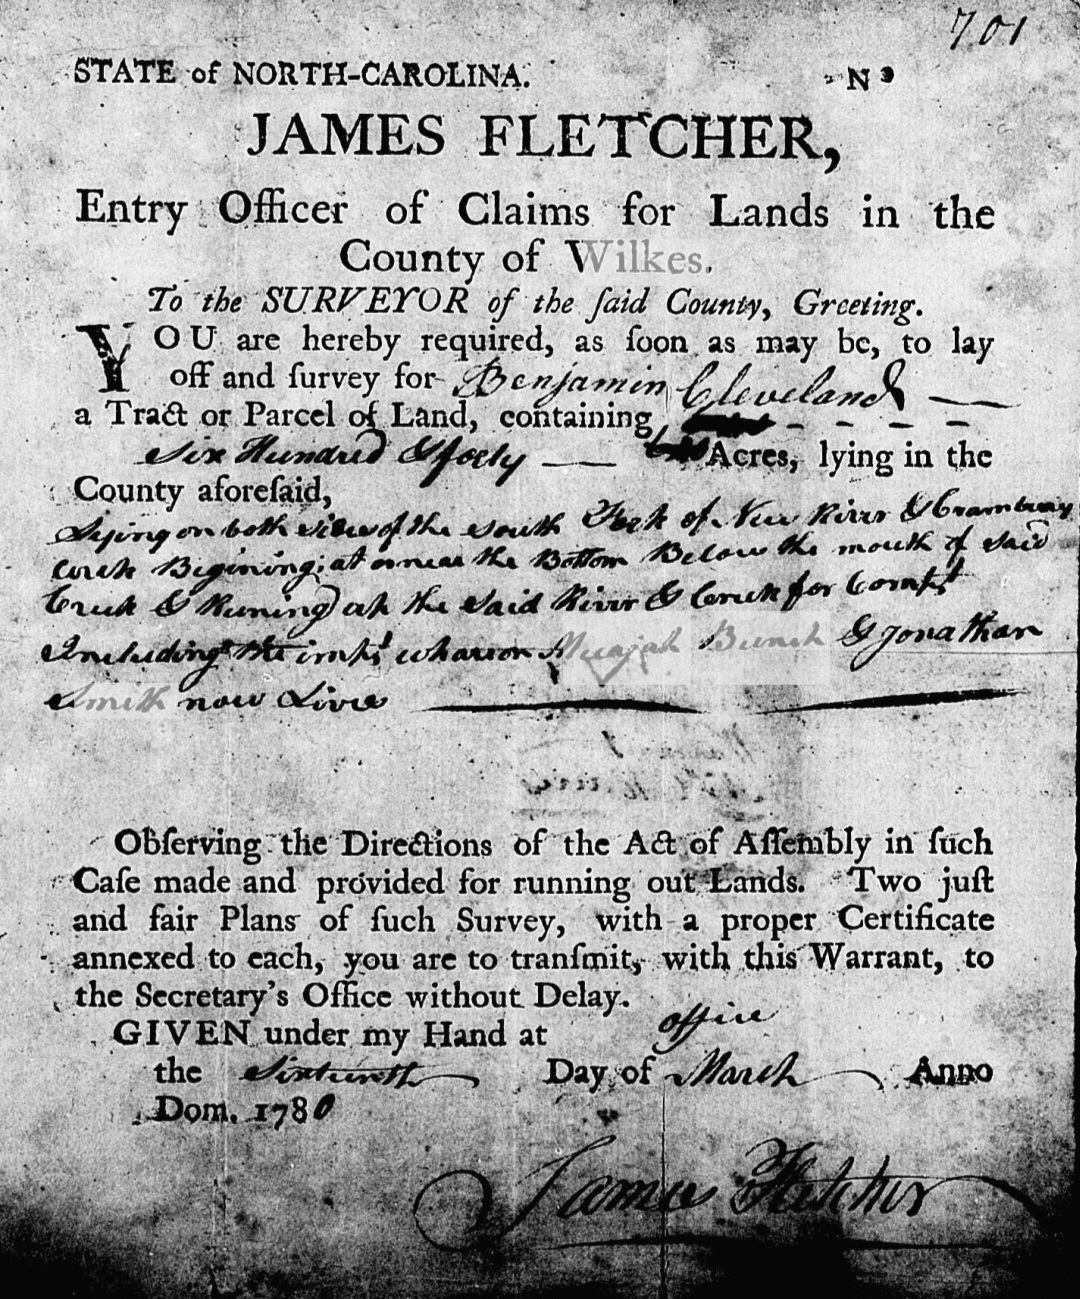 701
STATE of NORTH-CAROLINA. No
JAMES FLETCHER,
Entry Officer of Claims for Lands in the
County of Wilkes.
To the SURVEYOR of the ſaid County, Greeting.
YOU are hereby required, as ſoon as may be, to lay
off and ſurvey for Benjamin Cleveland
a Tract or Parcel of Land, containing
Six Hundred & forty Acres, lying in the
County aforeſaid,
Lying on both sides of the south Fork of New River & Cramberry
Creek Begining at or near the Bottom Below the mouth of said
Creek & Runing up the said River & Creek for Compt
Including the impts whareon Micajah Bunch & Jonathan
Smith now Lives
Obſerving the Directions of the Act of Aſſembly in ſuch
Caſe made and provided for running out Lands. Two juſt
and fair Plans of ſuch Survey, with a proper Certificate
annexed to each, you are to tranſmit, with this Warrant, to
the Secretary's Office without Delay.
GIVEN under my Hand at office
the Sixteenth Day of March Anno
Dom. 1780
James Fletcher